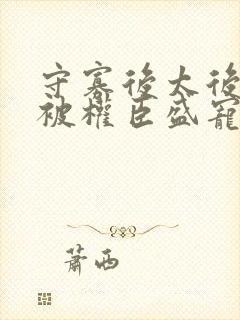 守寡後太後
被權臣盛寵
蕭西